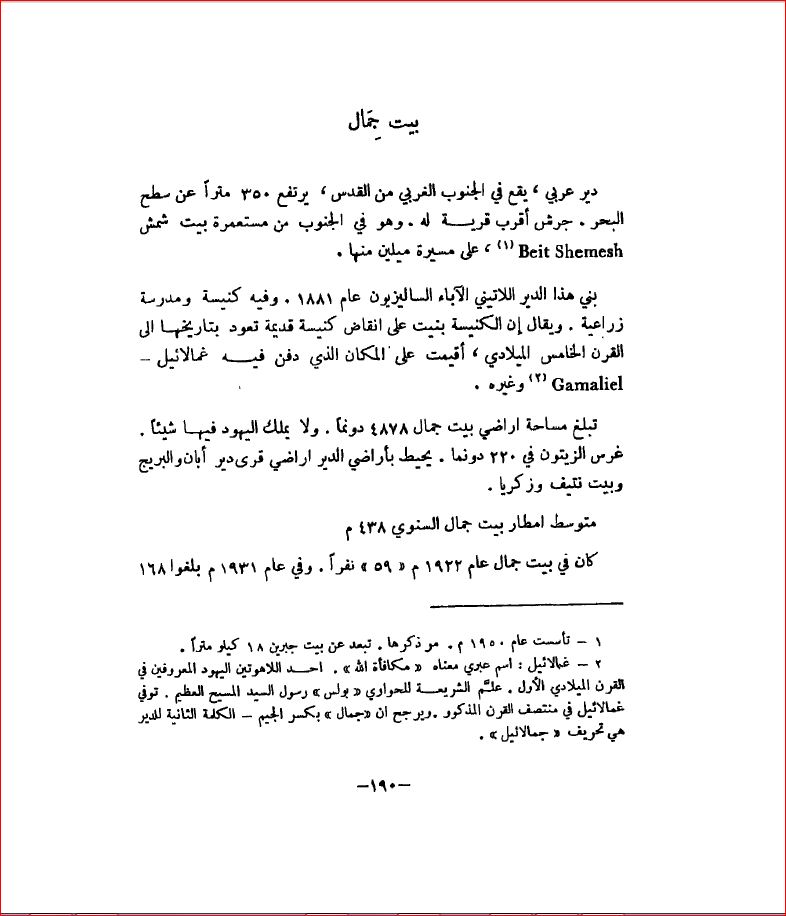 بيت جِمَال
دير عربي ، يقع في الجنوب الغربي من القدس ، يرتفع ٣٥٠ متراً عن سطح
البحر . جرش أقرب قريـــة له . وهو في الجنوب من مستعمرة بيت شمش
Beit Shemesh (١) ، على مسيرة ميلين منها .
بني هذا الدير اللاتيني الآباء الساليزيون عام ١٨٨١ . وفيه كنيسة ومدرسة
زراعية . ويقال إن الكنيسة بنيت على انقاض كنيسة قديمة تعود بتاريخهـا الى
القرن الخامس الميلادي ، أقيمت على المكان الذي دفن فيـــه غمالائيل –
Gamaliel (٢) وغيره .
تبلغ مساحة اراضي بيت جمال ٤٨٧٨ دونماً . ولا يملك اليهود فيهـا شيئاً .
غرس الزيتون في ٢٢٠ دونما . يحيط بأراضي الدير اراضي قرى دير أبان والبريج
وبيت نتيف وزكريا .
متوسط امطار بيت جمال السنوي ٤٣٨ م
كان في بيت جمال عام ١٩٢٢ م « ٥٩ » نفراً . وفي عام ١٩٣١ م بلغوا ١٦٨
١ – تأسست عام ١٩٥٠ م . مر ذكرها . تبعد عن بيت جبرين ١٨ كيلو متراً .
٢ – غمالائيل : اسم عبري معناه « مكافأة الله » . احـــد اللاهوتين اليهود المعروفين في
القرن الميلادي الأول . علـَّم الشريعـــة للحواري « بولس » رسول السيد المسيح العظيم . توفي
غمالائيل في منتصف القرن المذكور . ويرجح ان «جمال » بكسر الجيم – الكلمة الثانية للدير
هي تحريف « جمالائيل » .
–١٩٠–